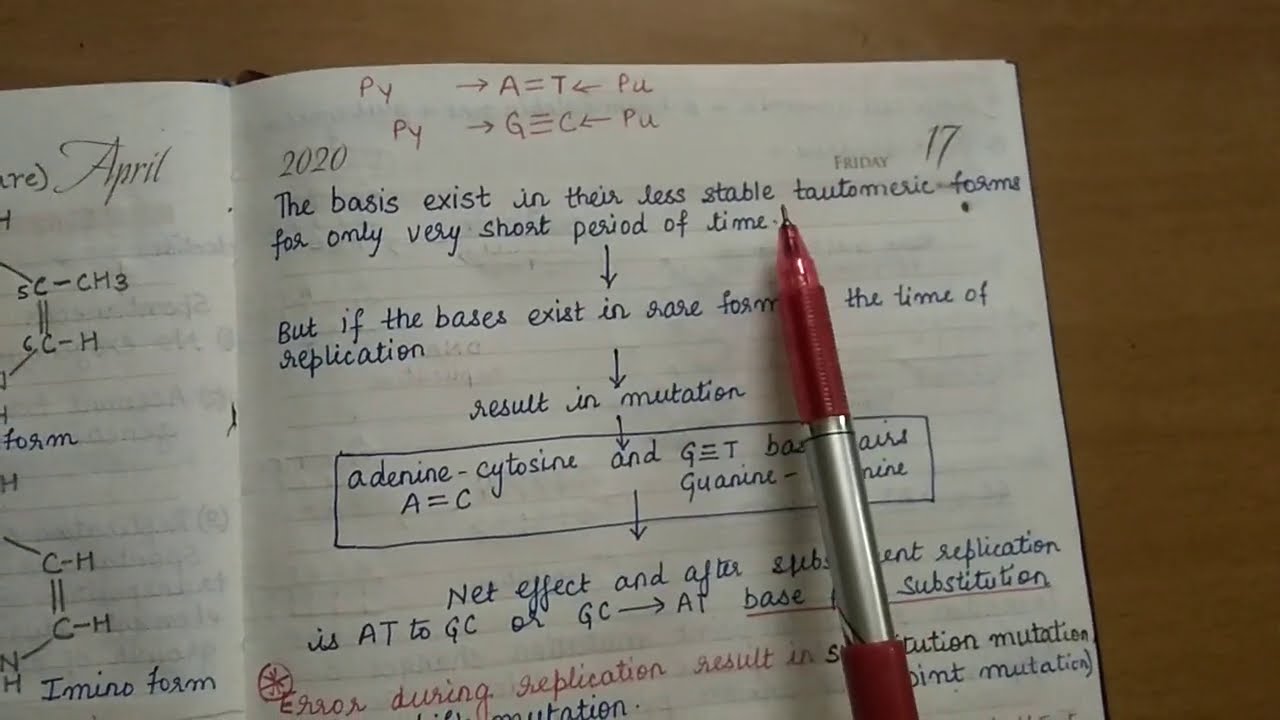 Py → A=T ← Pu
Py → G≡C ← Pu
are) April
H
5C-CH3
6C-H
H
form
H
C-H
C-H
N
H Imino form
2020 FRIDAY 17
The basis exist in their less stable tautomeric forms
for only very short period of time.
↓
But if the bases exist in rare form the time of
replication
↓
result in mutation
↓
adenine-cytosine and G≡T
A=C Guanine-
↓
Net effect and after replication
is AT to GC or GC → AT base substitution
Error during replication result in mutation
mutation.